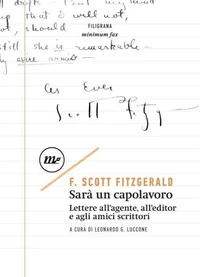 up that I will not,
not, should
FILIGRANA
still she is remarkable —
minimum fax
As Ever
Scott Fitzg
mf
F. SCOTT FITZGERALD
Sarà un capolavoro
Lettere all'agente, all'editor
e agli amici scrittori
A CURA DI LEONARDO G. LUCCONE